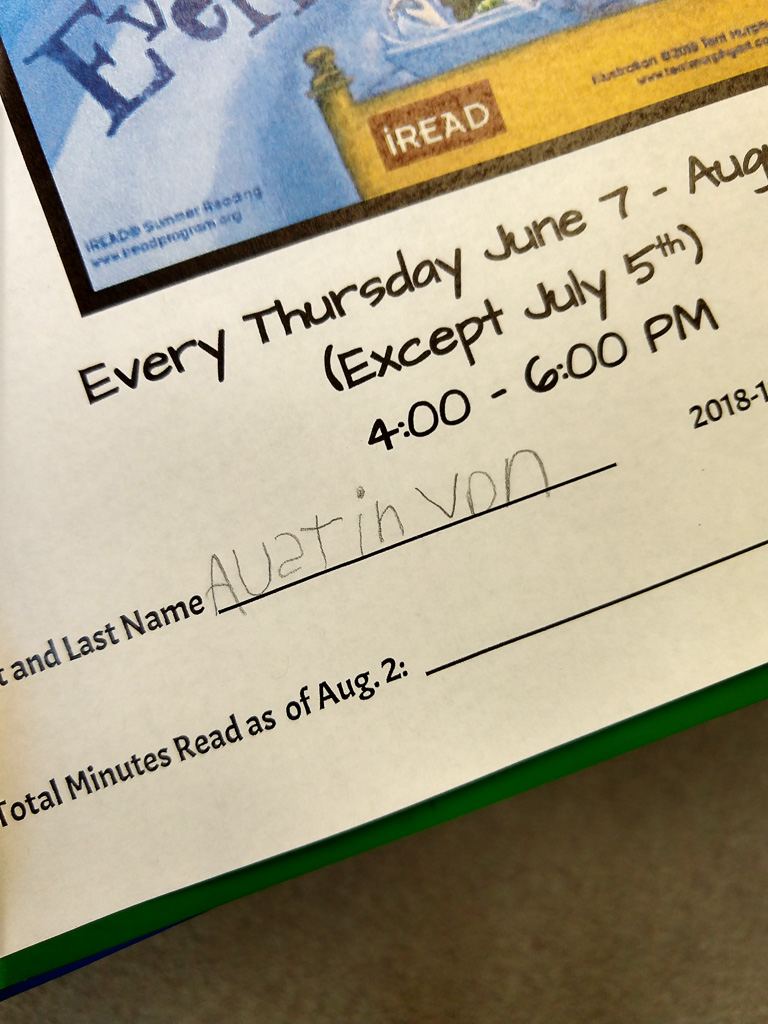 Every
iREAD
Illustration ©2018 Terri Murphy
www.terrimurphyart.co
iREAD® Summer Reading
www.ireadprogram.org
Every Thursday June 7 - Aug
(Except July 5th)
4:00 - 6:00 PM
2018-1
Austin Von
t and Last Name
Total Minutes Read as of Aug. 2: